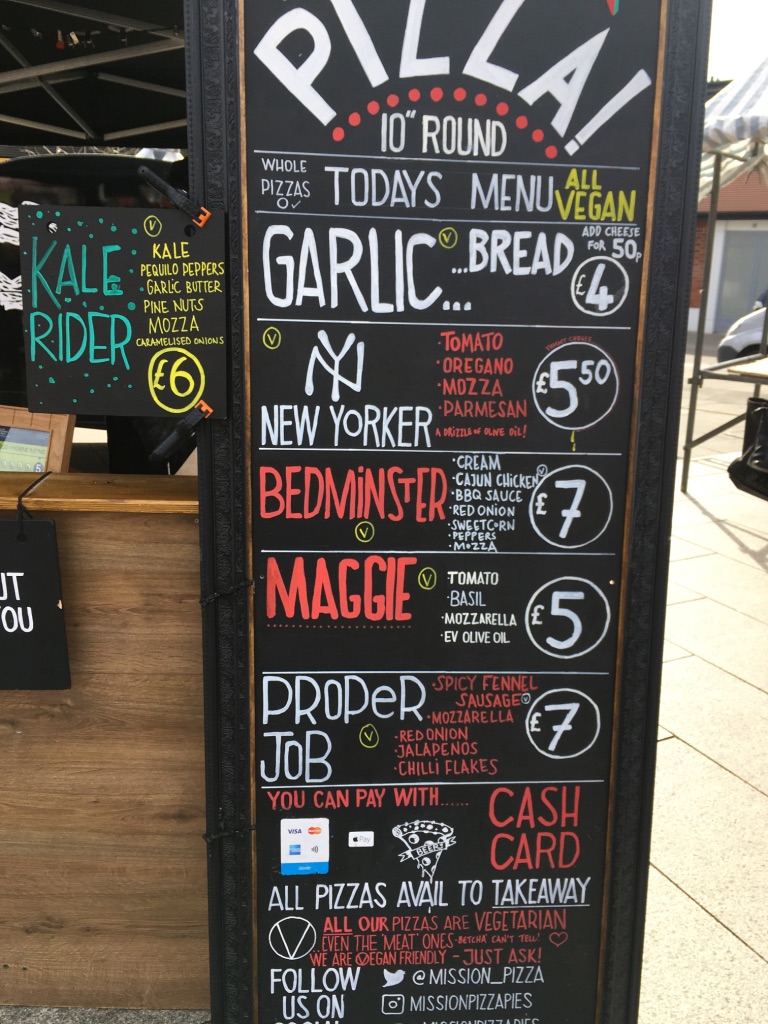 PIZZA!
10" ROUND
WHOLE
PIZZAS
TODAYS MENU
ALL
VEGAN
GARLIC...
...BREAD
V
ADD CHEESE
FOR 50p
£4
KALE
RIDER
V
KALE
PEQUILO PEPPERS
GARLIC BUTTER
PINE NUTS
MOZZA
CARAMELISED ONIONS
£6
V
NY
NEW YORKER
·TOMATO
·OREGANO
·MOZZA
·PARMESAN
A DRIZZLE OF OLIVE OIL!
£5 50
BEDMINSTER
V
·CREAM
·CAJUN CHICKEN V
·BBQ SAUCE
·RED ONION
·SWEETCORN
·PEPPERS
·MOZZA
£7
MAGGIE
V
·TOMATO
·BASIL
·MOZZARELLA
·EV OLIVE OIL
£5
UT
YOU
PROPER
JOB
V
·SPICY FENNEL
SAUSAGE V
·MOZZARELLA
·RED ONION
·JALAPENOS
·CHILLI FLAKES
£7
YOU CAN PAY WITH......
CASH
CARD
VISA
Pay
BEER
ALL PIZZAS AVAIL TO TAKEAWAY
V
ALL OUR PIZZAS ARE VEGETARIAN
...EVEN THE 'MEAT' ONES - BETCHA' CAN'T TELL'
WE ARE VEGAN FRIENDLY - JUST ASK!
FOLLOW
US ON
@MISSION_PIZZA
MISSIONPIZZAPIES